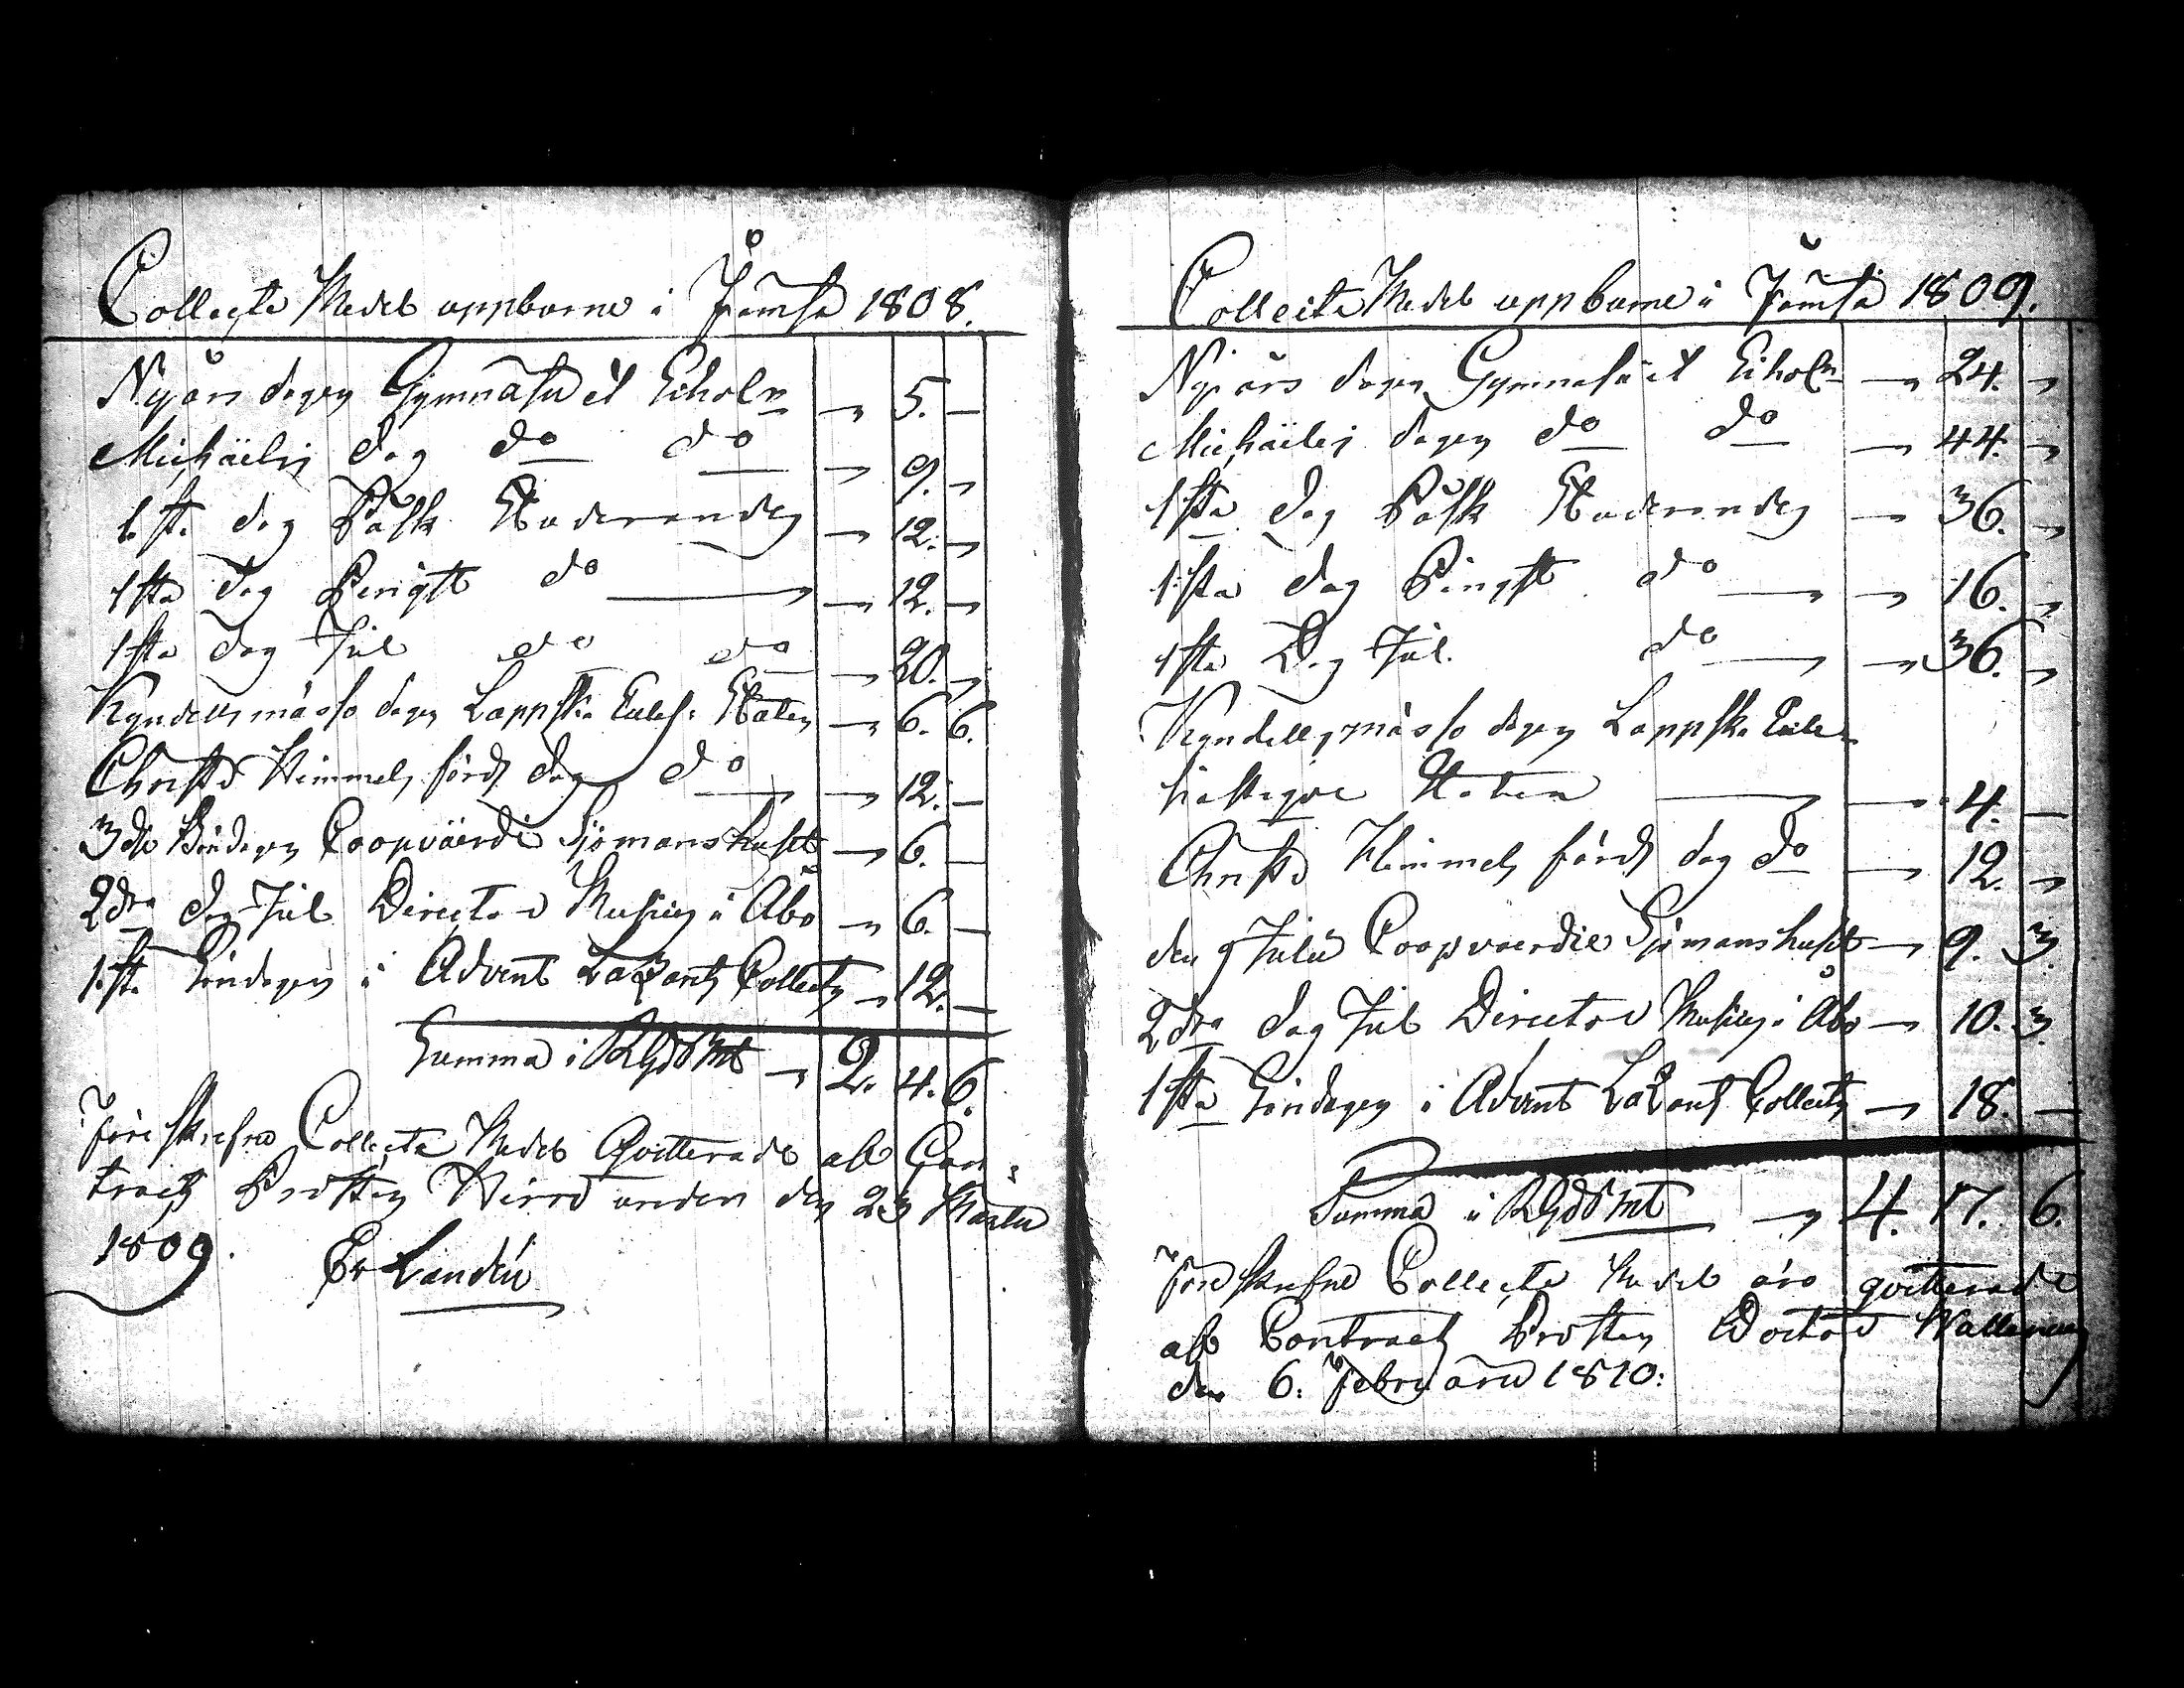 Collecte Medel uppburne i Jämsä 1808.
Nyårs dagen Gymnasii et Schol: — 5. —
Michäelis dag do do — 9. —
1sta dag Påsk Studerandes — 12. —
1sta dag Pingst do — 12. —
1sta dag Jul do do — 20. —
Kyndelsmässo dagen Lappska Eccles: Staten — 6. 6.
Christi Himmels färds dag do — 12. —
3die Böndagen Coopvärdi Sjömanshuset — 6. —
2dra dag Jul Director Musices i Åbo — 6. —
1sta Söndagen i Advent Lazarets Collecten — 12. —
Summa i Rgds Mt — 2. 4. 6.
Föreskrefne Collecte Medel Qvitterade af Con-
tracts Prosten under den 23 Martii
1809. Er Landén
Collecte Medel uppburne i Jämsä 1809.
Nyårs dagen Gymnasii et Schol: — 24. —
Michäelis dagen do do — 44. —
1sta dag Påsk Studerandes — 36. —
1sta dag Pingst do — 16. —
1sta Dag Jul. do — 36. —
Kyndellsmässo dagen Lappska Eccle-
siastique Staten — 4. —
Christi Himmels färds dag do — 12. —
den 9 Julii Coopvaerdie Sjömanshuset — 9. 3.
2dra dag Jul Director Musices i Åbo — 10. 3.
1sta Söndagen i Advent Lazarets Collecten — 18. —
Summa i Rgds Mt — 4. 17. 6.
Föreskrefne Collecte Medel äro qvitterade
af Contracts Prosten Doctor Wallenius
den 6. Februarii 1810: